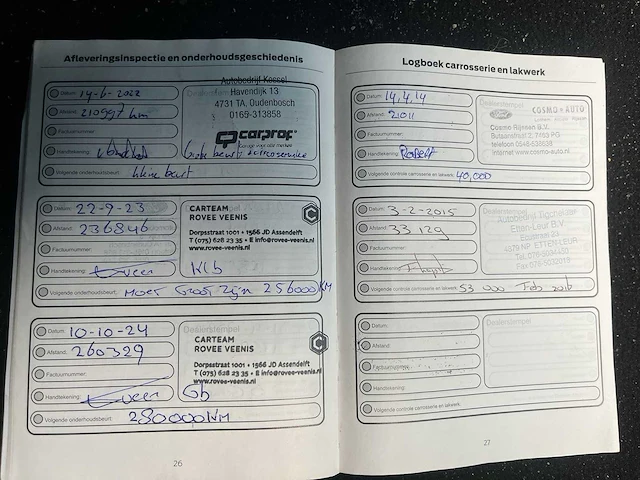 Afleveringsinspectie en onderhoudsgeschiedenis
Datum: 14-6-2022
Afstand: 210997 km
Factuurnummer:
Handtekening:
Grote beurt + airco service
Volgende onderhoudsbeurt: kleine beurt
Autobedrijf Kessel
Havendijk 13
4731 TA, Oudenbosch
0169-313858
carprof
Datum: 22-9-23
Afstand: 236846
Factuurnummer:
Handtekening:
Klb
Volgende onderhoudsbeurt: MOET Groot Zijn 256000 KM
CARTEAM
ROVEE VEENIS
Dorpsstraat 1001 • 1566 JD Assendelft
T (075) 628 23 35 • E info@rovee-veenis.nl
www.rovee-veenis.nl
Datum: 10-10-24
Afstand: 260329
Factuurnummer:
Handtekening:
Gb
Volgende onderhoudsbeurt: 280000KM
Dealerstempel
CARTEAM
ROVEE VEENIS
Dorpsstraat 1001 • 1566 JD Assendelft
T (075) 628 23 35 • E info@rovee-veenis.nl
www.rovee-veenis.nl
26
Logboek carrosserie en lakwerk
Datum: 14,4,14
Afstand: 2011
Factuurnummer:
Handtekening: Robert
Volgende controle carrosserie en lakwerk: 40,000
Dealerstempel
Ford COSMO AUTO
Cosmo Rijssen B.V.
telefoon 0548-538538
internet www.cosmo-auto.nl
Datum: 3-2-2015
Afstand: 33129
Factuurnummer:
Handtekening:
Volgende controle carrosserie en lakwerk: 53 000 Feb 2016
Autobedrijf Tigchelaar
Etten-Leur B.V.
ETTEN-LEUR
Datum:
Afstand:
Factuurnummer:
Handtekening:
Volgende controle carrosserie en lakwerk:
Dealerstempel
27